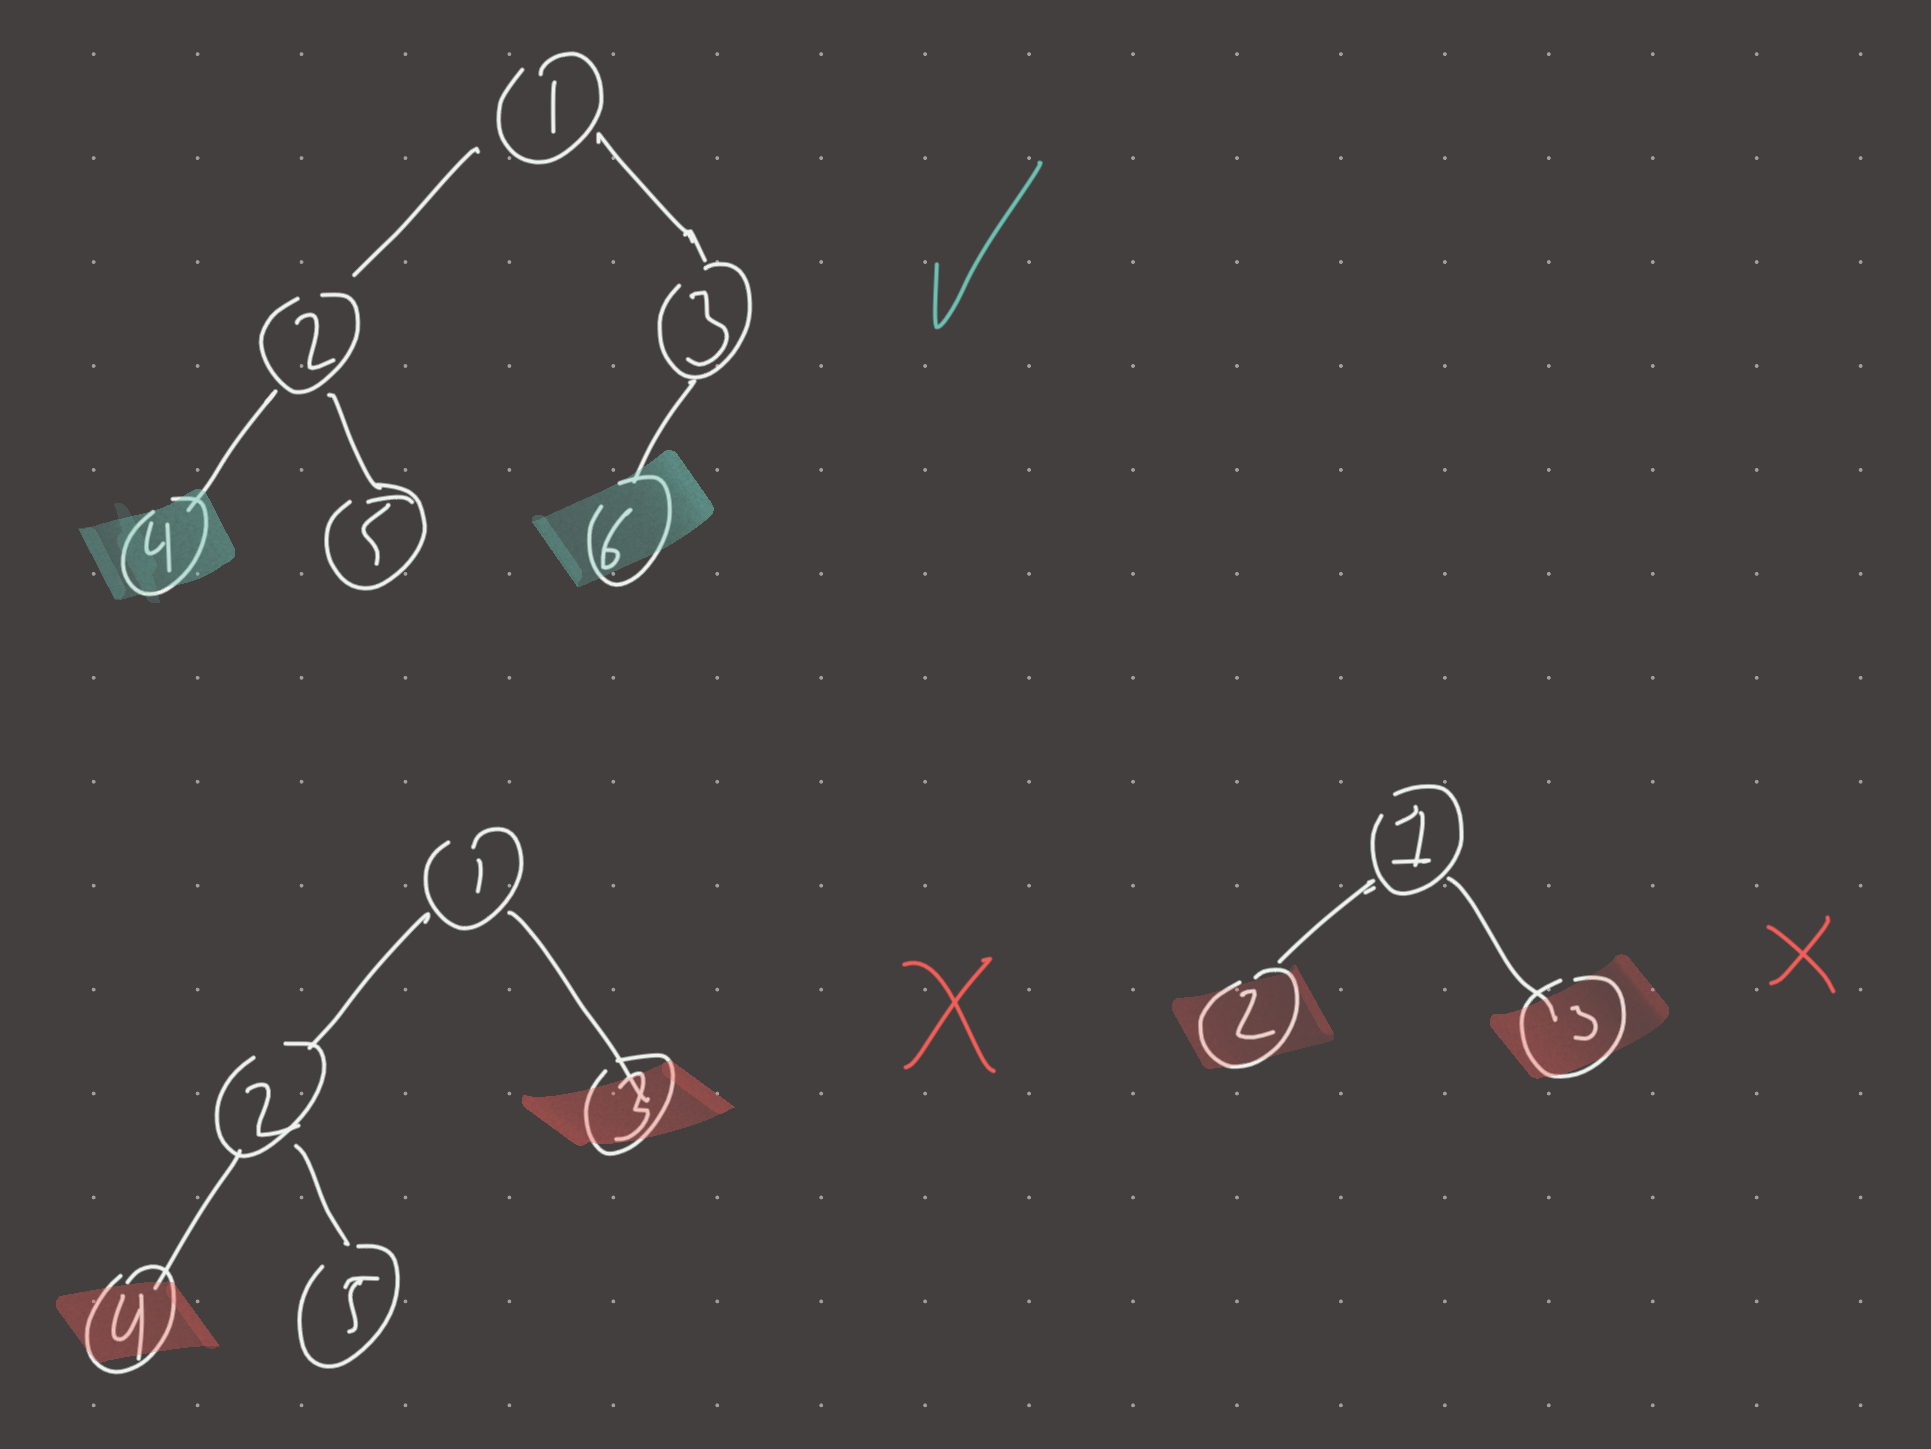 1
2 3
4 5 6
1
2 3
4 5
1
2 3